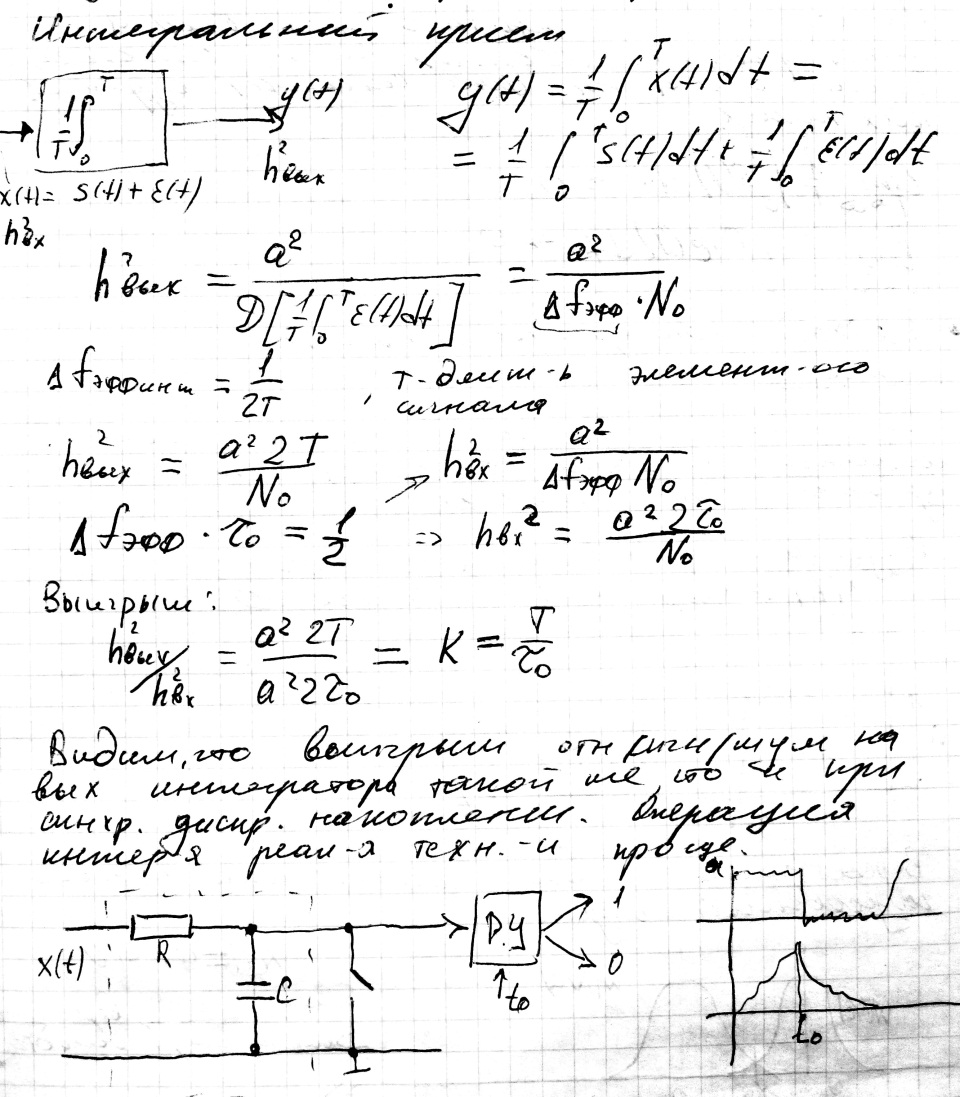 Интегральный прием
1/T ∫₀ᵀ → y(t) y(t) = 1/T ∫₀ᵀ x(t)dt =
x(t) = S(t) + ε(t) h²вых = 1/T ∫₀ᵀ S(t)dt + 1/T ∫₀ᵀ ε(t)dt
h²вх
h²вых = a² / D[1/T ∫₀ᵀ ε(t)dt] = a² / Δfэфф · N₀
Δfэфф инт = 1/2T , T - длит-ь элемент-ого
сигнала
h²вых = a² 2T / N₀ → h²вх = a² / Δfэфф N₀
Δfэфф · τ₀ = 1/2 => hвх² = a² 2τ₀ / N₀
Выигрыш:
h²вых / h²вх = a² 2T / a² 2τ₀ = K = T / τ₀
Видим, что выигрыш отн сигн/шум на
вых интегратора такой же, что и при
синхр. дискр. накоплении. Операция
интегр-я реал-я техн.-и проще.
x(t) R C Д.У 1 0 t₀
a t₀